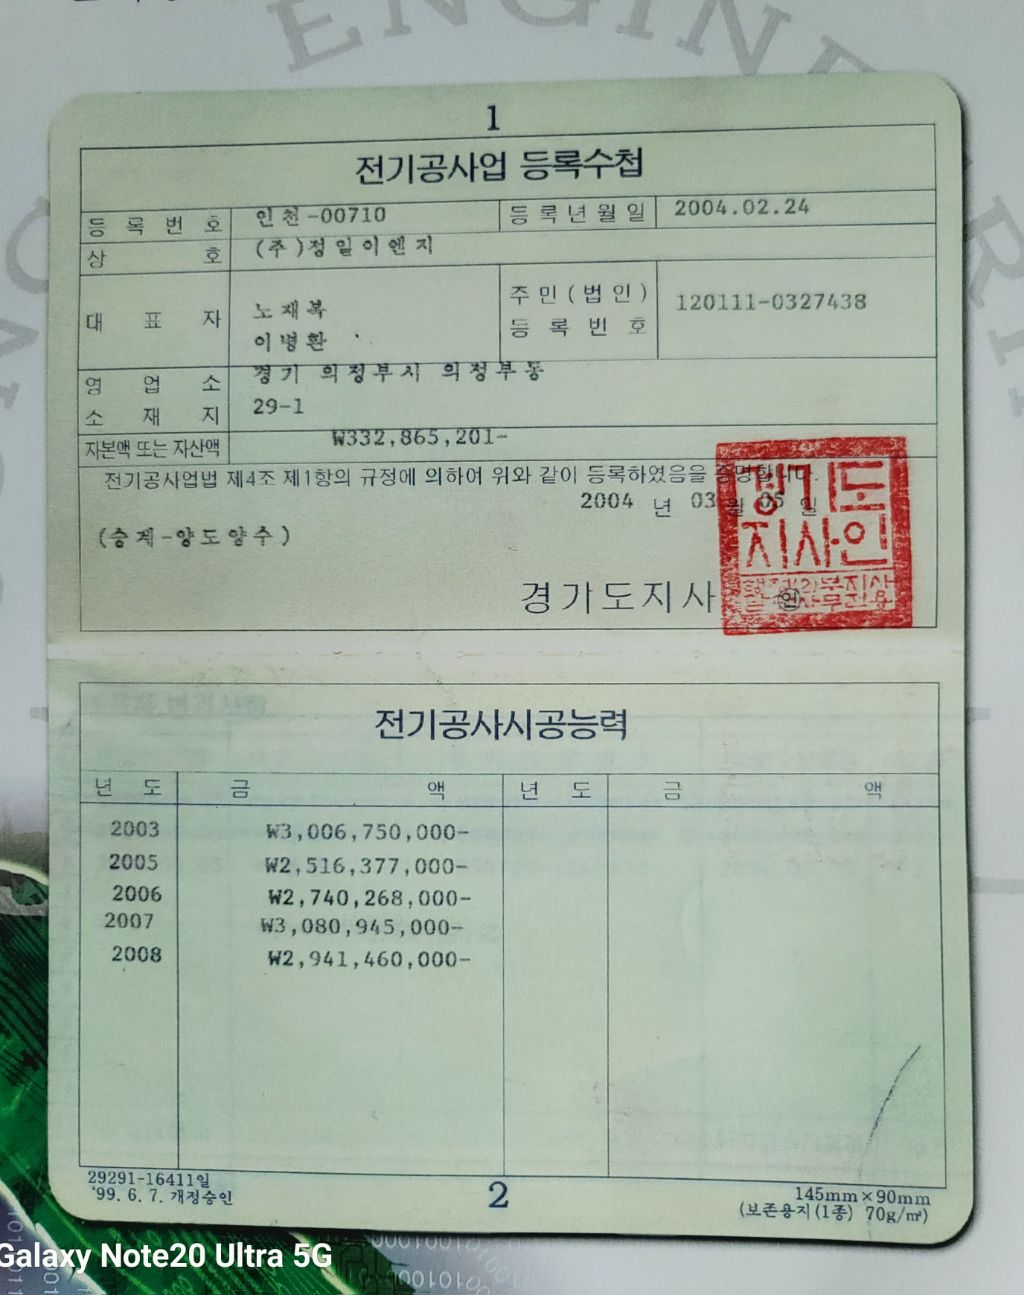 ENGINE
1
전기공사업 등록수첩
등록번호 인천-00710 등록년월일 2004.02.24
상호 (주)정일이엔지
대표자 노재복 이병환 주민(법인)등록번호 120111-0327438
영업소 소재지 경기 의정부시 의정부동 29-1
자본액 또는 자산액 ₩332,865,201-
전기공사업법 제4조 제1항의 규정에 의하여 위와 같이 등록하였음을 증명합니다.
2004 년 03 월 05 일
(승계-양도양수)
경기도지사 인
경기도
지사인
전기공사시공능력
년도 금액 년도 금액
2003 ₩3,006,750,000-
2005 ₩2,516,377,000-
2006 ₩2,740,268,000-
2007 ₩3,080,945,000-
2008 ₩2,941,460,000-
29291-16411일
'99. 6. 7. 개정승인
2
145mm×90mm
(보존용지(1종) 70g/㎡)
Galaxy Note20 Ultra 5G